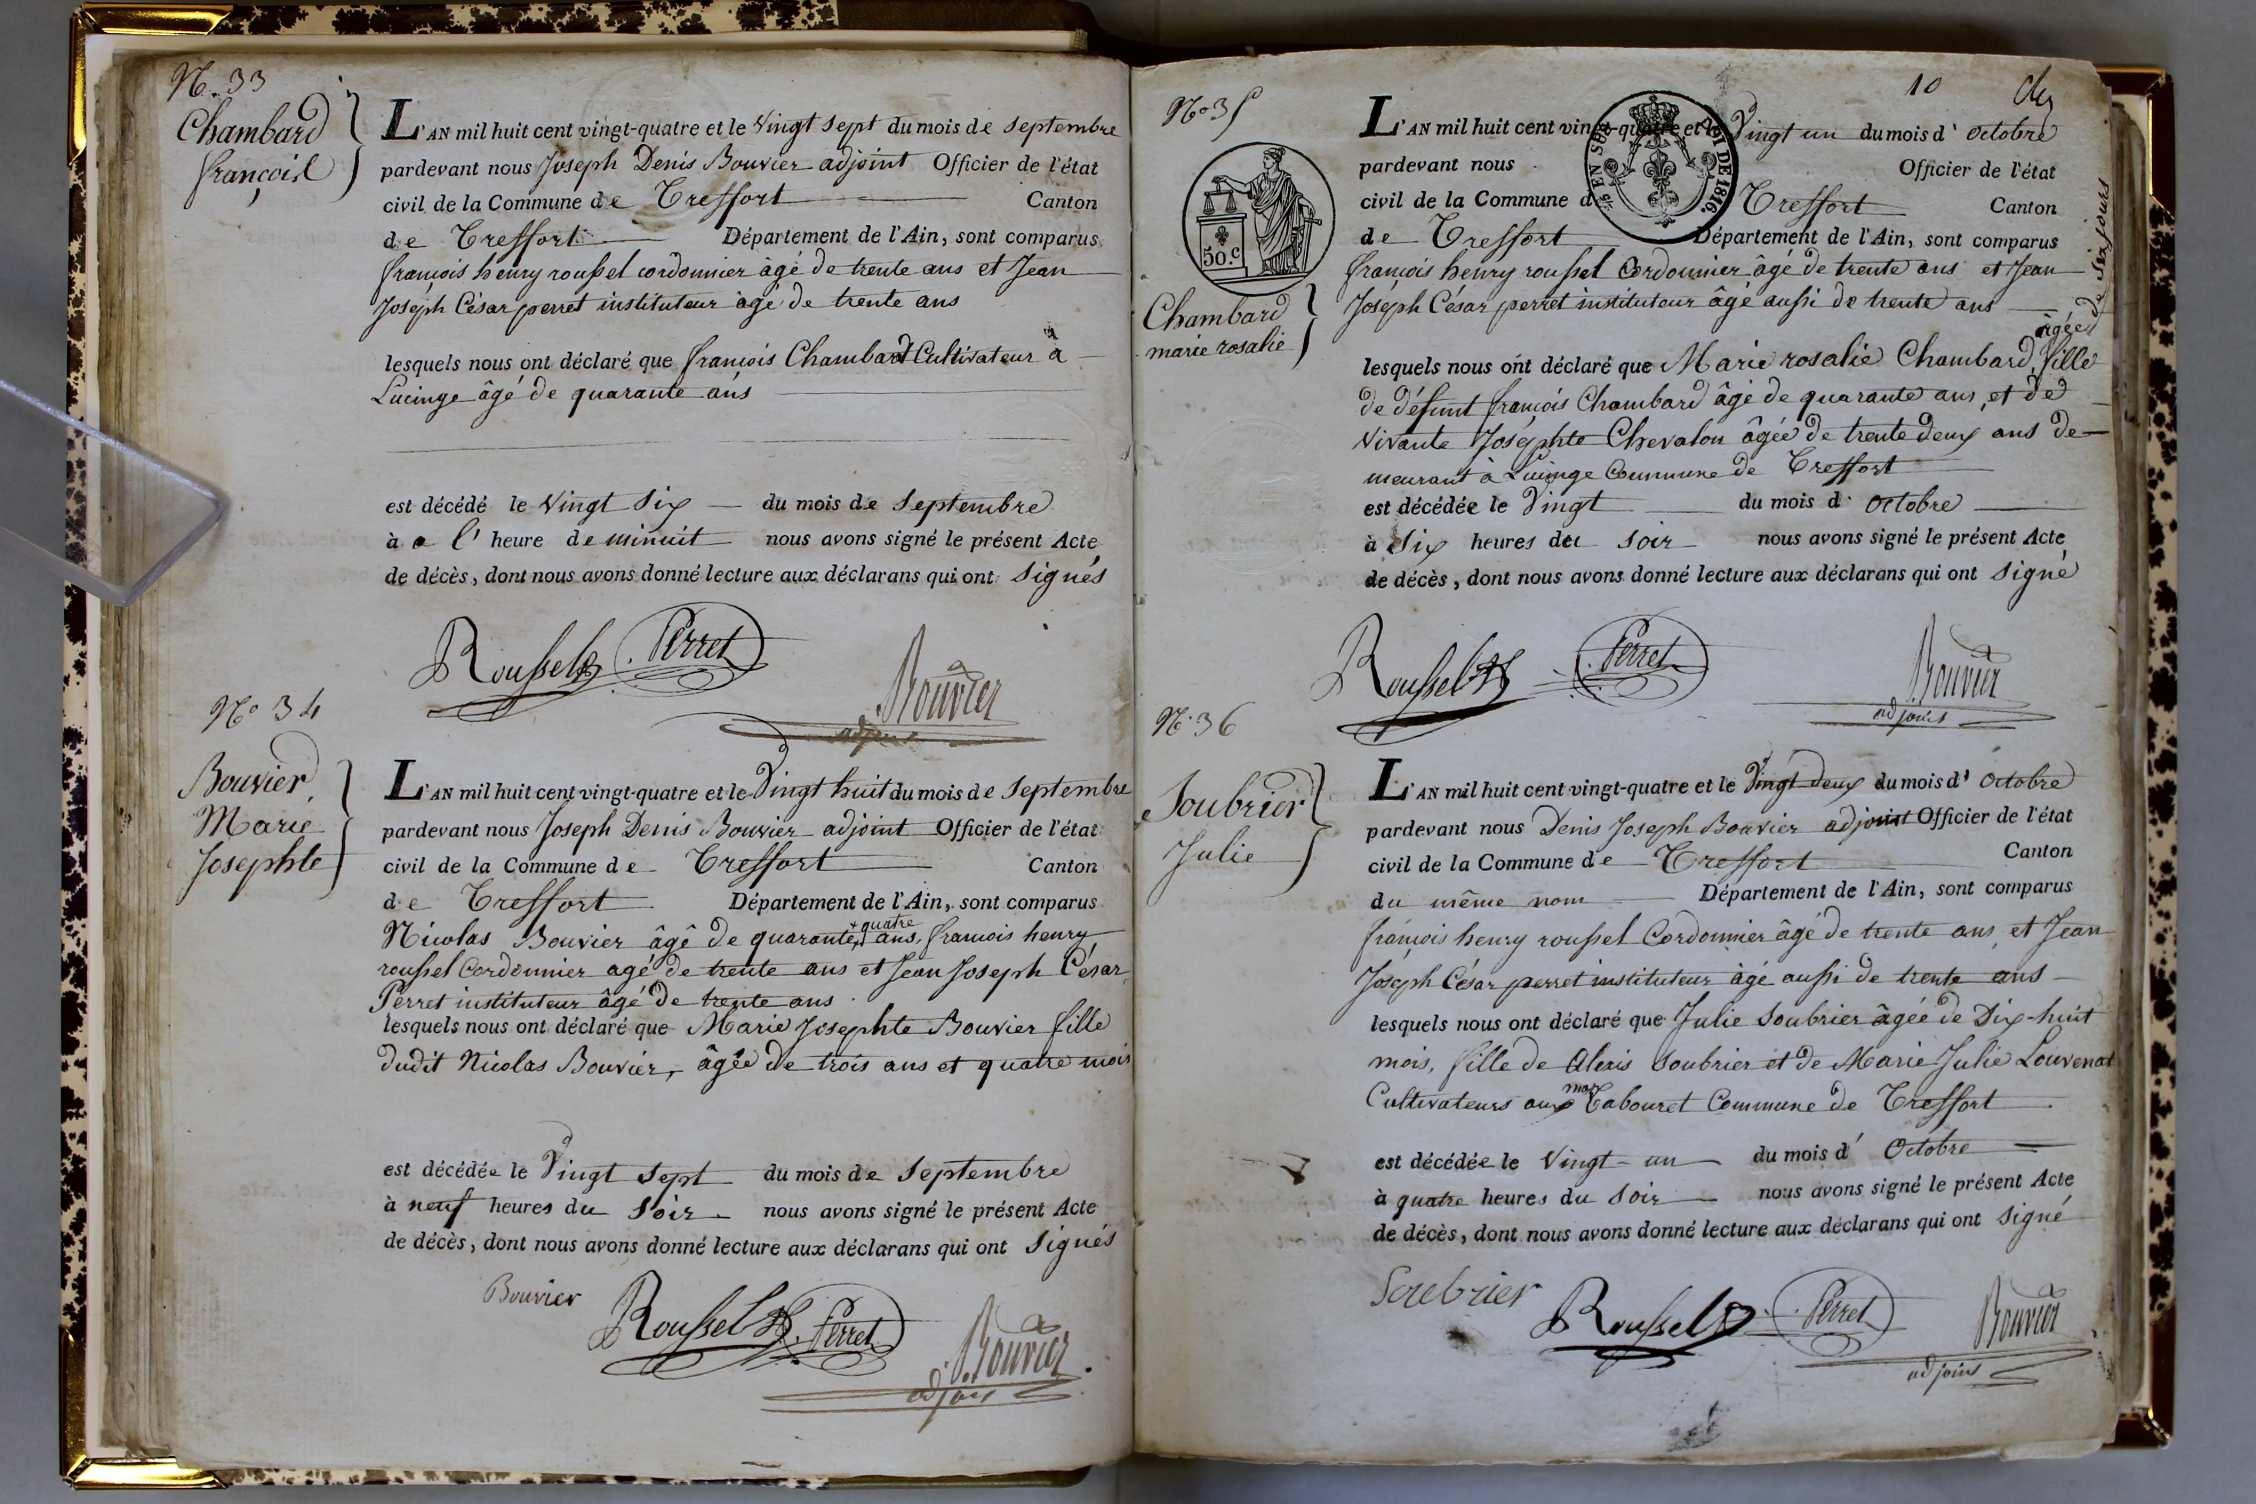 N.° 33
Chambard
françois
L'AN mil huit cent vingt-quatre et le Vingt sept du mois de septembre
pardevant nous Joseph Denis Bouvier adjoint Officier de l'état
civil de la Commune de Treffort Canton
de Treffort Département de l'Ain, sont comparus
françois henry roussel cordonnier âgé de trente ans et Jean
Joseph César perret instituteur âgé de trente ans
lesquels nous ont déclaré que françois Chambard Cultivateur à
Lucinge âgé de quarante ans
est décédé le Vingt Six du mois de septembre
à a l' heure de minuit nous avons signé le présent Acte
de décès, dont nous avons donné lecture aux déclarans qui ont signés
Roussel Perret
Bouvier
adjoint
N° 34
Bouvier
Marie
Josephte
L'AN mil huit cent vingt-quatre et le Vingt huit du mois de septembre
pardevant nous Joseph Denis Bouvier adjoint Officier de l'état
civil de la Commune de Treffort Canton
de Treffort Département de l'Ain, sont comparus
Nicolas Bouvier âgé de quarante + quatre ans, françois henry
roussel Cordonnier agé de trente ans et Jean Joseph César
Perret instituteur âgé de trente ans
lesquels nous ont déclaré que Marie Josephte Bouvier fille
dudit Nicolas Bouvier, âgée de trois ans et quatre mois
est décédée le Vingt sept du mois de septembre
à neuf heures du soir nous avons signé le présent Acte
de décès, dont nous avons donné lecture aux déclarans qui ont signés
Bouvier Roussel Perret
Bouvier
adjoint
10
N° 35
50.c
Chambard
marie rosalie
L'AN mil huit cent vingt-quatre et le Vingt un du mois d' octobre
pardevant nous Officier de l'état
civil de la Commune d Treffort Canton
de Treffort Département de l'Ain, sont comparus
EN SUS
LOI DE 1816.
françois henry roussel Cordonnier âgé de trente ans et Jean
Joseph César perret instituteur âgé aussi de trente ans
âgée de six jours
lesquels nous ont déclaré que Marie rosalie Chambard, fille
de défunt françois Chambard âgé de quarante ans, et de
vivante Joséphte Chevalon âgée de trente deux ans de
meurant à Lucinge Commune de Treffort
est décédée le Vingt du mois d' octobre
à Six heures du soir nous avons signé le présent Acte
de décès, dont nous avons donné lecture aux déclarans qui ont signé
Roussel Perret Bouvier
adjoint
N° 36
Soubrier
Julie
L'AN mil huit cent vingt-quatre et le Vingt deux du mois d' octobre
pardevant nous Denis Joseph Bouvier adjoint Officier de l'état
civil de la Commune de Treffort Canton
du même nom Département de l'Ain, sont comparus
françois henry roussel Cordonnier âgé de trente ans, et Jean
Joseph César perret instituteur âgé aussi de trente ans
lesquels nous ont déclaré que Julie Soubrier âgée de Dix-huit
mois, fille de Alexis Soubrier et de Marie Julie Louvenat
Cultivateurs aux mas Tabouret Commune de Treffort
est décédée le Vingt-un du mois d' Octobre
à quatre heures du soir nous avons signé le présent Acte
de décès, dont nous avons donné lecture aux déclarans qui ont signé
Soubrier Roussel Perret Bouvier
adjoint